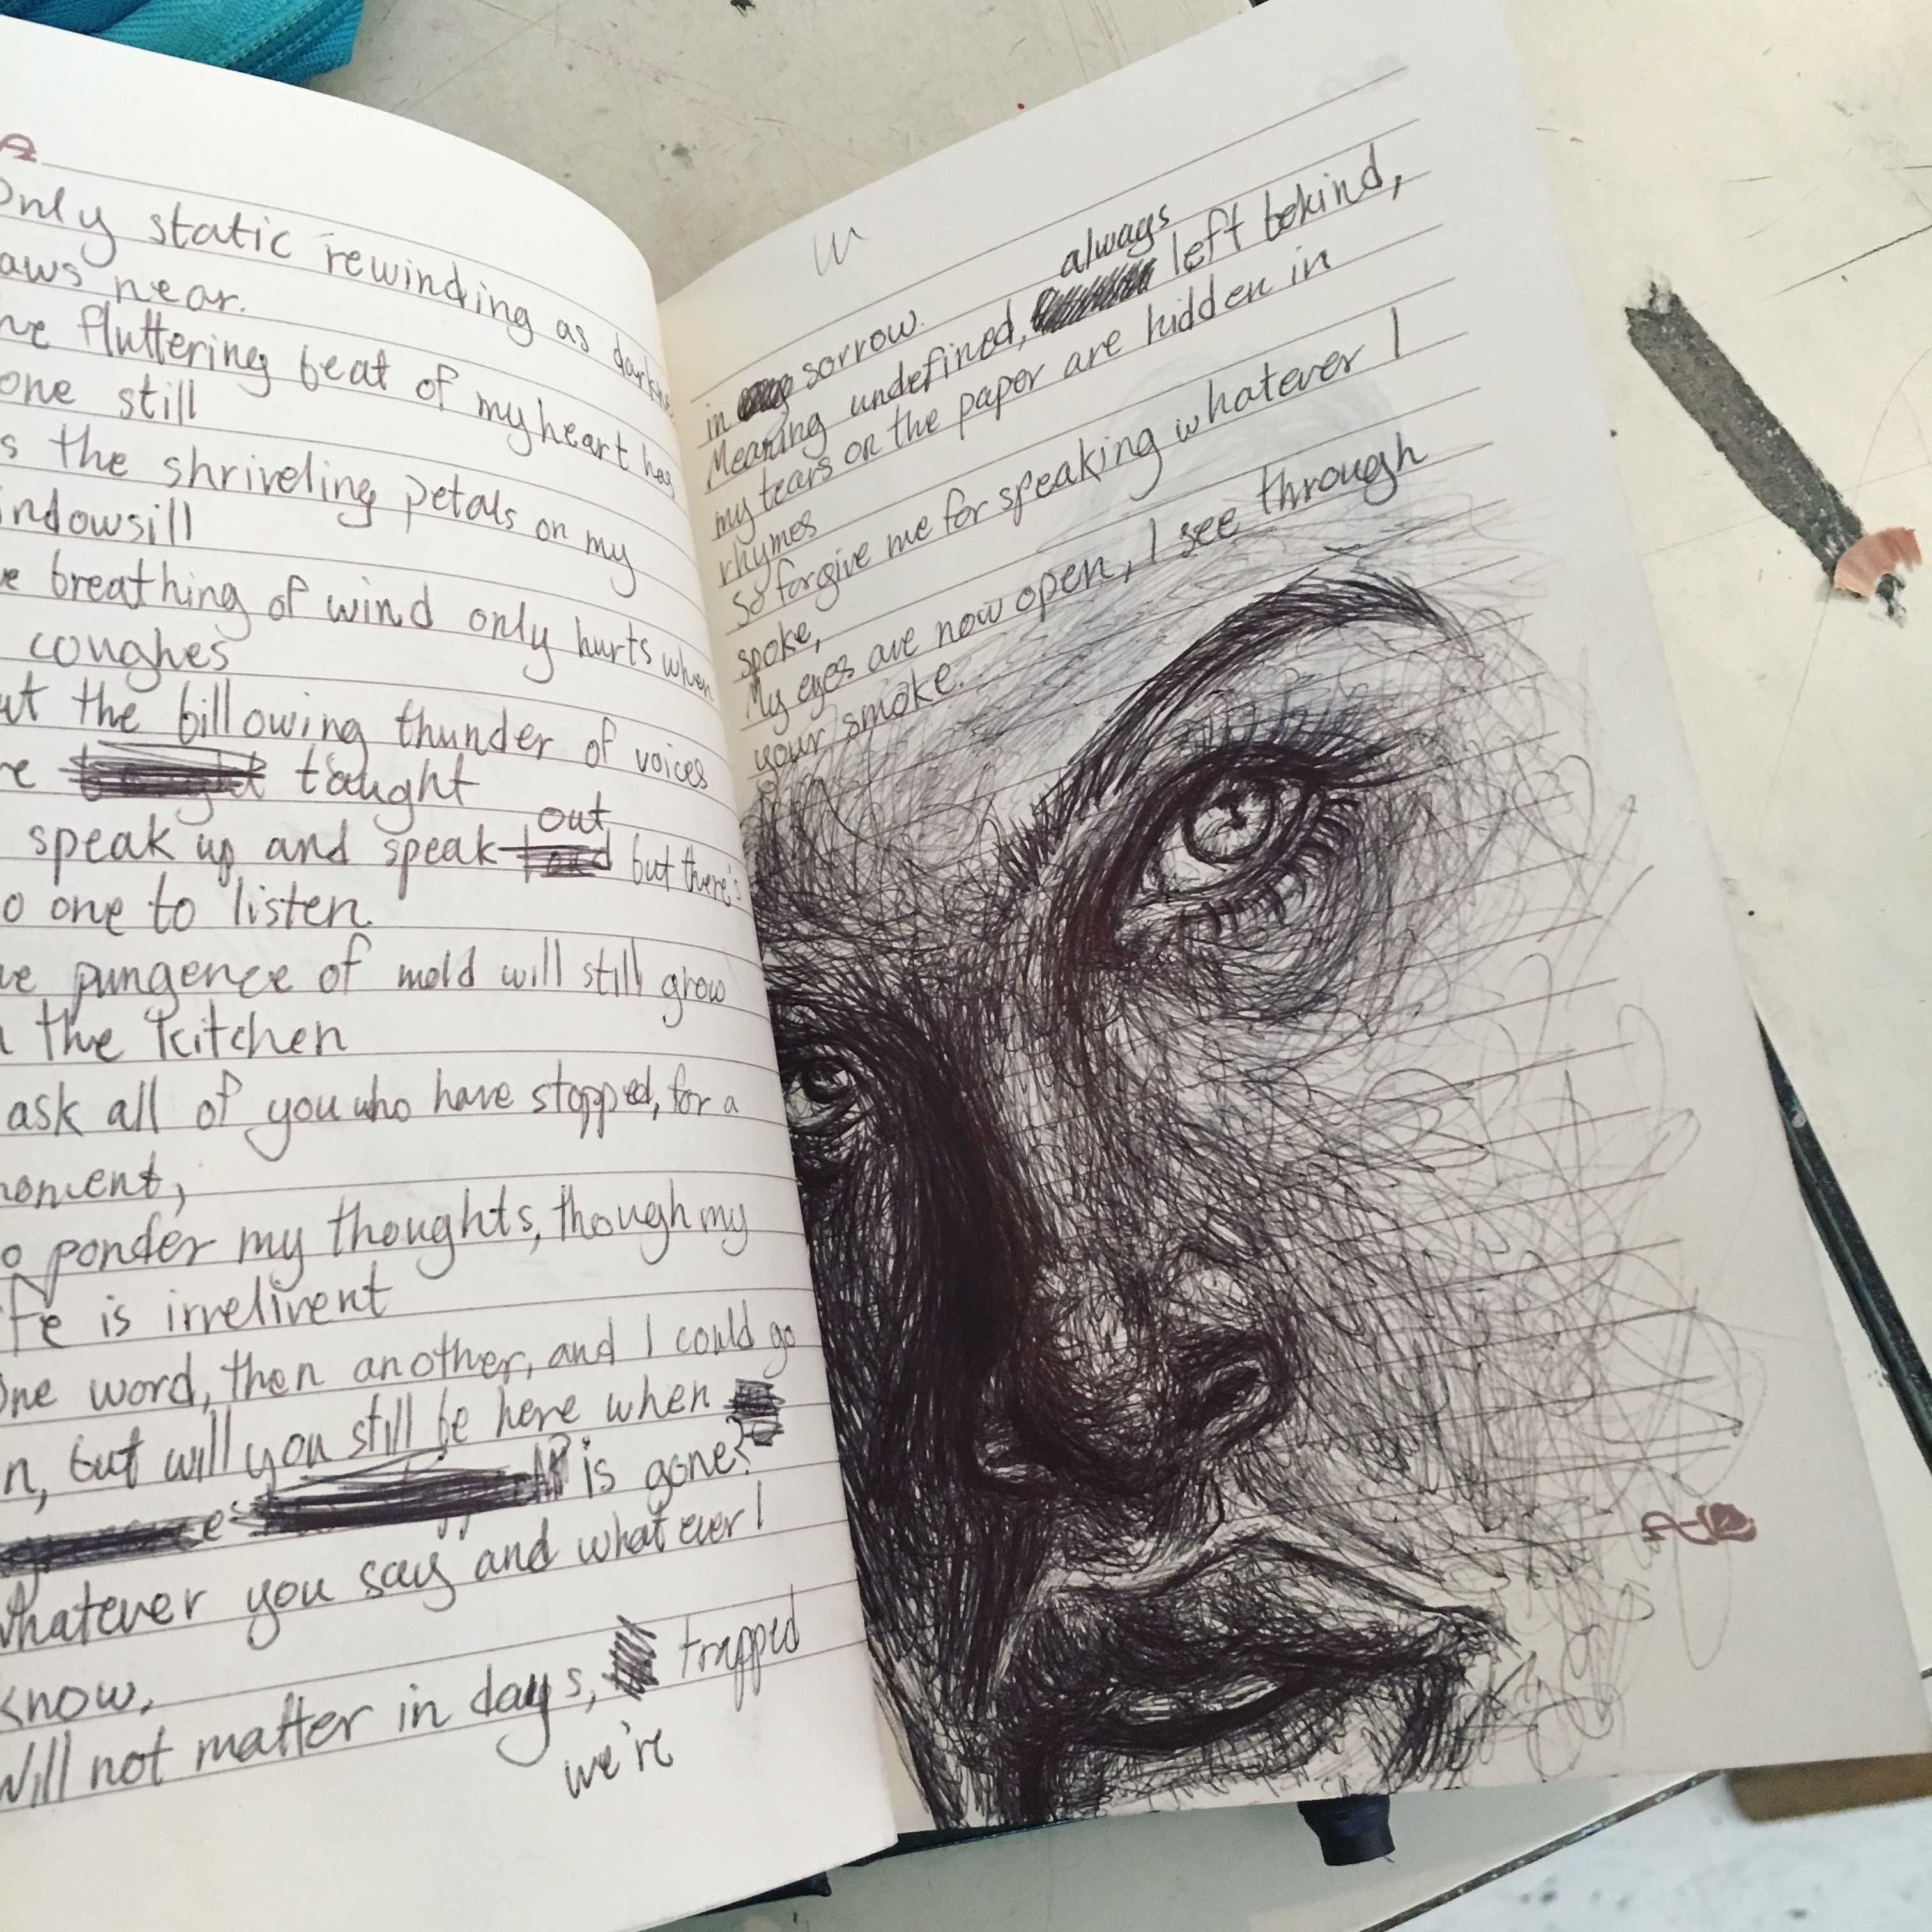 only static rewinding as
aws near.
fluttering beat of my heart has
one still
the shriveling petals on my
indowsill
breathing of wind only hurts when
coughes
ut the billowing thunder of voices
taught
out
speak up and speak but there's
o one to listen
pungence of mold will still grow
the kitchen
ask all of you who have stopped, for a
moment,
ponder my thoughts, though my
fe is irrelivent
One word, then another, and I could go
n, but will you still be here when
is gone?
whatever you say and what ever I
know,
Will not matter in days, trapped
we're
in sorrow.
always
Meaning undefined, left behind,
my tears on the paper are hidden in
rhymes
So forgive me for speaking whatever I
spoke,
My eyes are now open, I see through
your smoke.